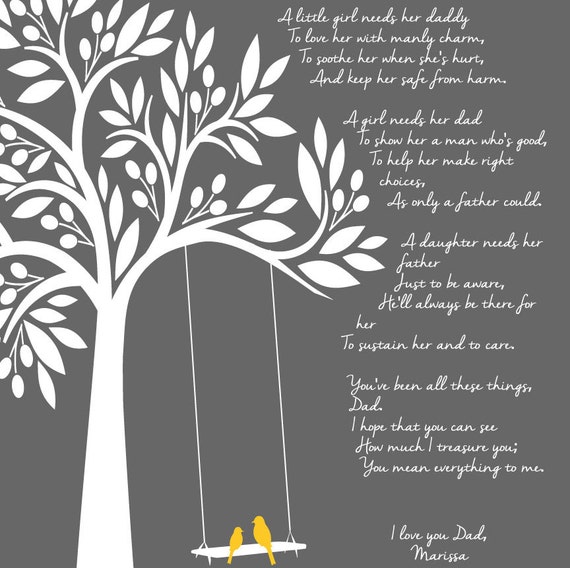 A little girl needs her daddy
To love her with manly charm,
To soothe her when she's hurt,
And keep her safe from harm.
A girl needs her dad
To show her a man who's good,
To help her make right
choices,
As only a father could.
A daughter needs her
father
Just to be aware,
He'll always be there for
her
To sustain her and to care.
You've been all these things,
Dad.
I hope that you can see
How much I treasure you;
You mean everything to me.
I love you Dad,
Marissa